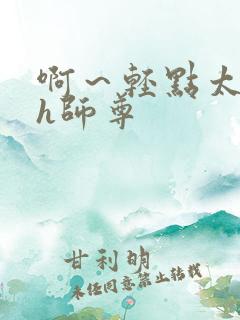 啊～輕點太
h師尊
甘利明
未经同意禁止转载